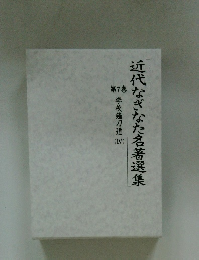 近代なぎなた名著選集
第7巻
学校薙刀道